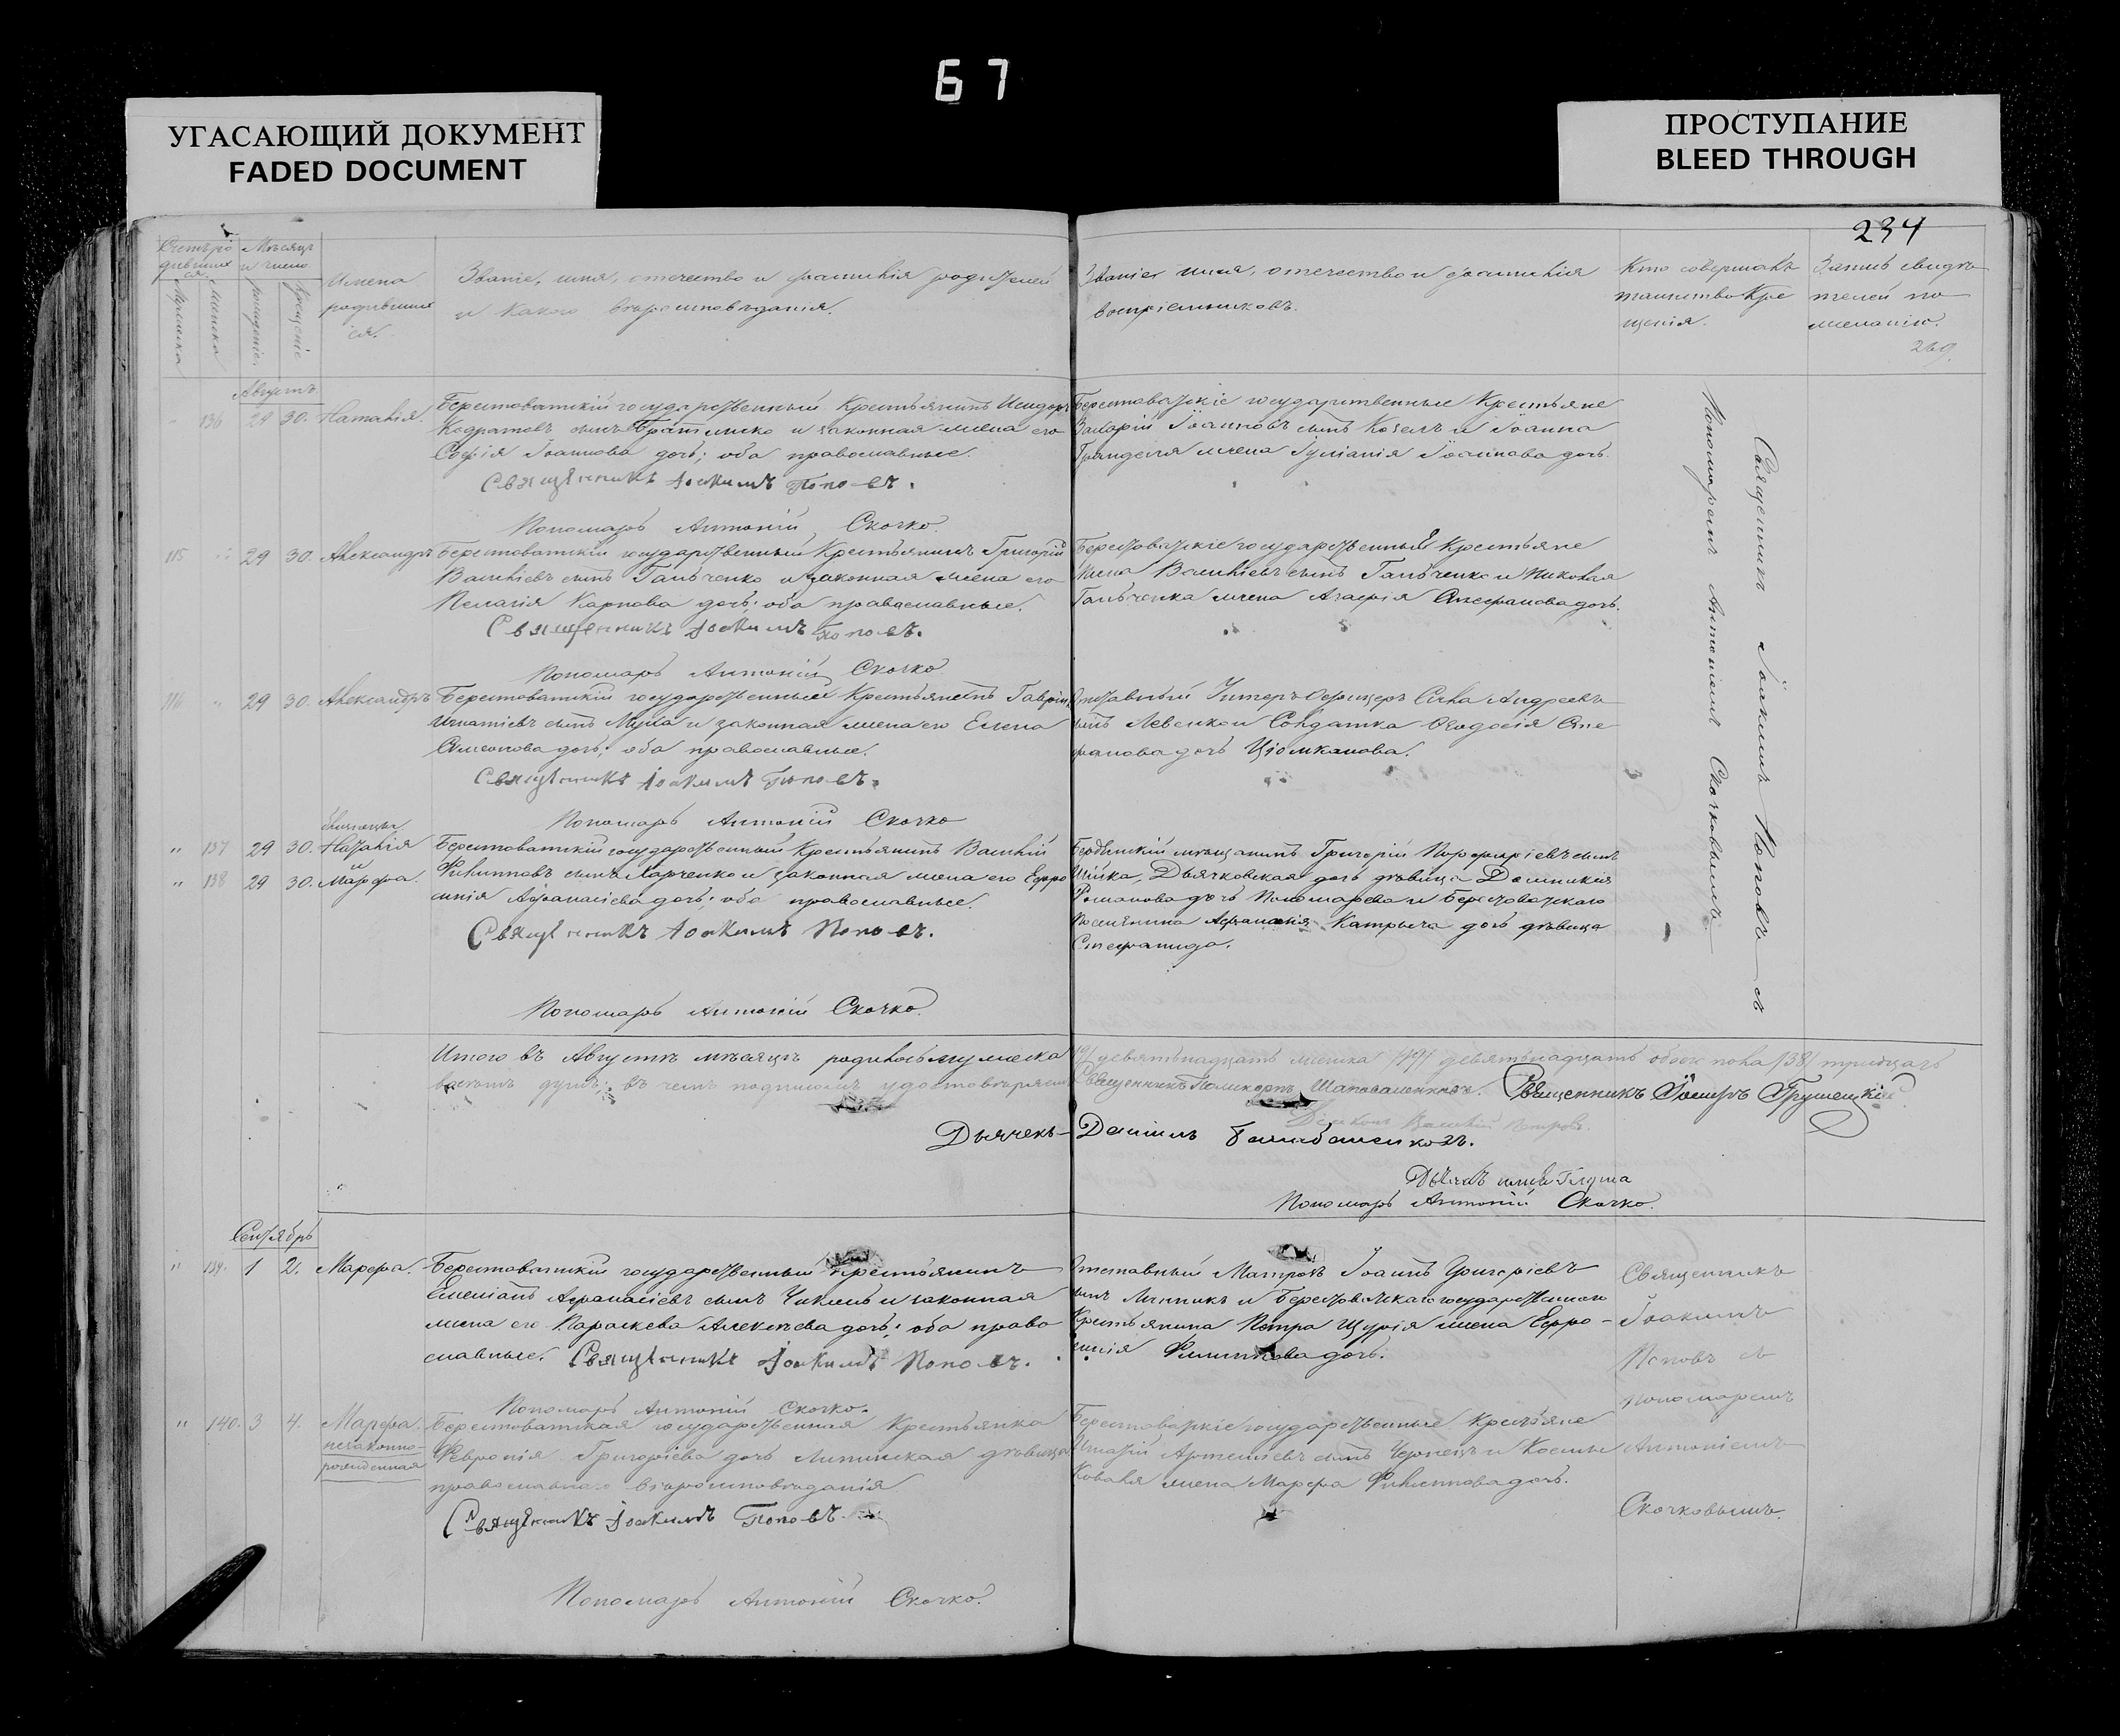 67
УГАСАЮЩИЙ ДОКУМЕНТ
FADED DOCUMENT
ПРОСТУПАНИЕ
BLEED THROUGH
234
Счетъ ро
дивших
ся.
Мѣсяцъ
и число
рожденіе.
Крещеніе
Имена
родивших
ся.
Званіе, имя, отечество и фамилія родителей
и какого вѣроисповѣданія.
Званіе, имя, отечество и фамилія
воспріемниковъ.
Кто совершалъ
таинство Кре
щенія.
телей по
желанію.
269.
Августъ
136 29 30. Наталія.
Берестоватскій государственный Крестьянинъ Исидоръ
Кодратовъ сынъ и законная жена его
Софія Іоаннова дочь; оба православные.
Священникъ Іоакимъ Поповъ.
Пономарь Антоній Скочко.
Берестоватскіе государственные Крестьяне
Іоанновъ сынъ Козелъ и Іоанна
жена Іуліанія Іоаннова дочь.
115 29 30. Александръ
Берестоватскій государственный Крестьянинъ Григорій
Васильевъ сынъ Гальченко и законная жена его
Пелагія Карпова дочь; оба православные.
Священникъ Іоакимъ Поповъ.
Пономарь Антоній Скочко
Берестоватскіе государственные Крестьяне
Васильевъ сынъ Гальченко и Николая
Гальченка жена Агафія Стефанова дочь.
116 29 30. Александръ
Берестоватскій государственный Крестьянинъ Гавріилъ
Игнатіевъ сынъ Муха и законная жена его Елена
Симеонова дочь; оба православные.
Священникъ Іоакимъ Поповъ.
Пономарь Антоній Скочко
Отставный Унтеръ-Офицеръ Сила Андреевъ
сынъ Левенко и Солдатка Ѳеодосія Сте
фанова дочь
Священникъ Іоакимъ Поповъ съ
Пономаремъ Антоніемъ Скочковымъ.
близнецы
137 29 30. Наталія
и
138 29 30. Марфа.
Берестоватскій государственный Крестьянинъ Василій
Филипповъ сынъ Харченко и законная жена его Евфро
синія Афанасіева дочь; оба православные.
Священникъ Іоакимъ Поповъ.
Пономарь Антоній Скочко.
Бердянскій мѣщанинъ Григорій Порфиріевъ сынъ
Дьячковская дочь дѣвица Домникія
Романова дочь Пономарева и Берестоватскаго
Поселянина Афанасія Катрыча дочь дѣвица
Стефанида.
Итого въ Августѣ мѣсяцѣ родилось мужеска
19/ девятьнадцать женска /19/ девятьнадцать обоего пола /38/ тридцать
восемь душъ; въ чемъ подписомъ удостовѣряемъ
Священникъ Поликарпъ Шаповаленковъ. Священникъ Іосифъ Грушецкій
Діаконъ Василій Петровъ.
Дьячекъ Даніилъ Балабаненковъ.
Пономарь Антоній Скочко.
Сентябрь
139. 1 2. Марфа.
Берестоватскій государственный крестьянинъ
Емеліанъ Афанасіевъ сынъ и законная
жена его Параскева Алексѣева дочь; оба право
славные. Священникъ Іоакимъ Поповъ.
Пономарь Антоній Скочко.
Отставный Матрозъ Іоаннъ Григоріевъ
сынъ и Берестоватскаго государственнаго
Крестьянина Петра жена Евфро-
синія Филиппова дочь.
Священникъ
Іоакимъ
Поповъ съ
пономаремъ
Антоніемъ
Скочковымъ.
140. 3 4. Марфа.
незаконно-
рожденная
Берестоватская государственная Крестьянка
Феѵронія Григоріева дочь Липинская дѣвица
православнаго вѣроисповѣданія
Священникъ Іоакимъ Поповъ.
Пономарь Антоній Скочко.
Берестоватскіе государственные Крестьяне
Игнатій Артеміевъ сынъ Чернецъ и Космы
Коваля жена Марфа Филиппова дочь.